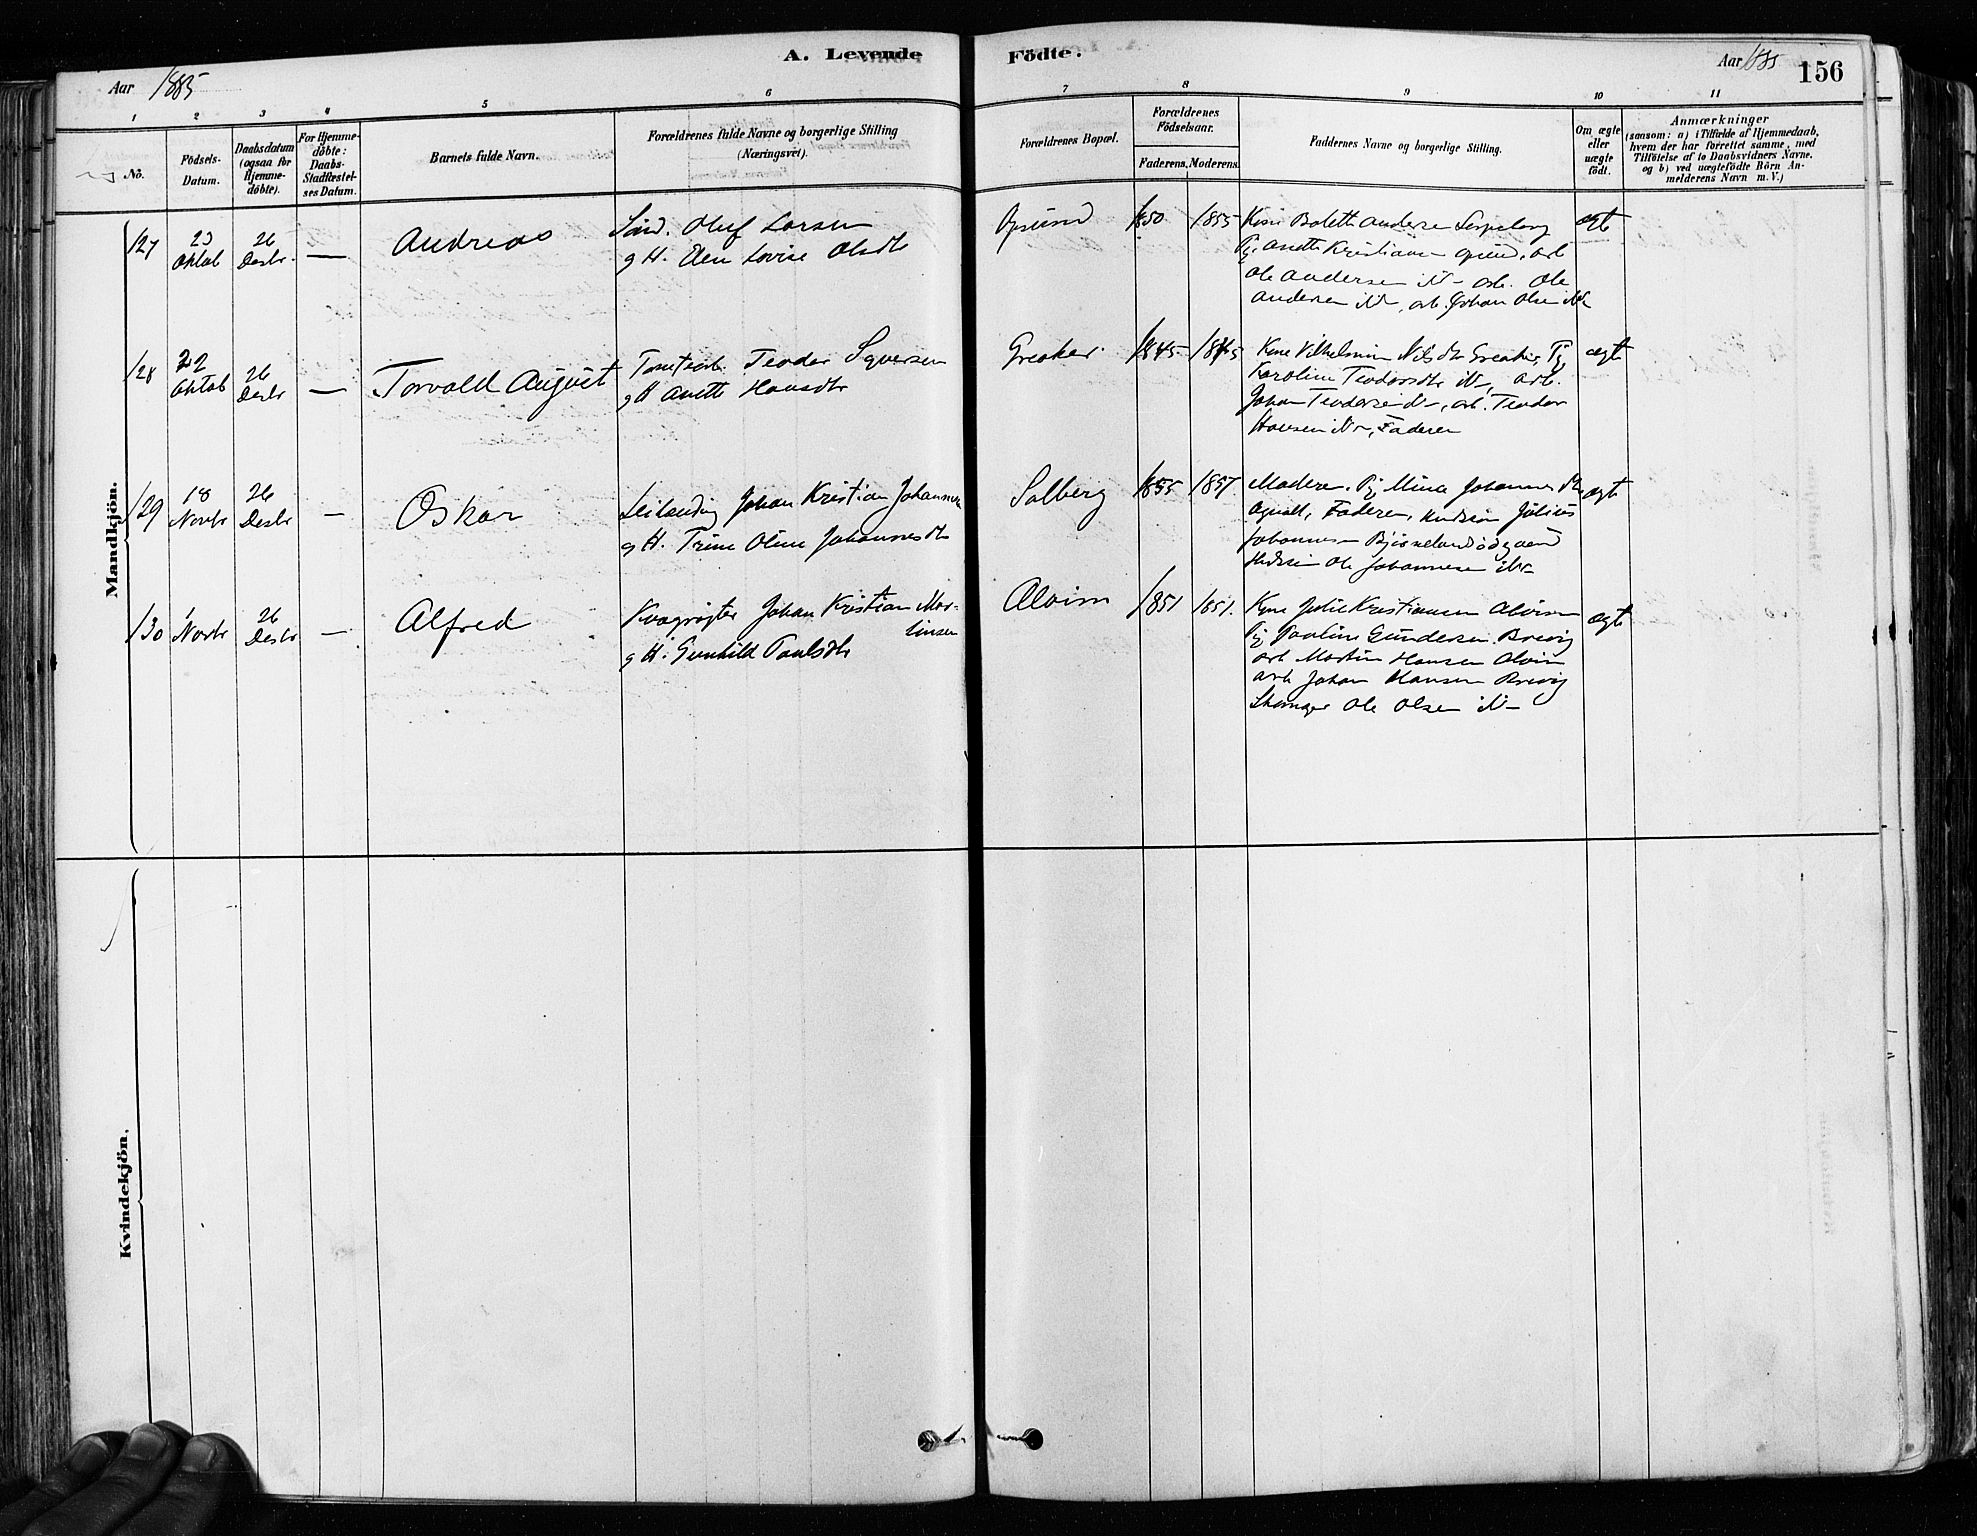 A. Levende Födte.
Aar 1885
Aar 1885 156
1 2 3 4 5 6 7 8 9 10 11
No.
Födsels-
Datum.
Daabsdatum
(ogsaa for
Hjemme-
döbte).
For Hjemme-
döbte:
Daabs-
Stadfæstel-
ses Datum.
Barnets fulde Navn.
Forældrenes fulde Navne og borgerlige Stilling
(Næringsvei).
Forældrenes Bopæl.
Forældrenes
Födselsaar.
Faderens. Moderens.
Faddernes Navne og borgerlige Stilling.
Om ægte
eller
uægte
födt.
Anmærkninger
(saasom: a) i Tilfælde af Hjemmedaab,
hvem der har forrettet samme, med
Tilföielse af to Daabsvidners Navne.
og b) ved uægtefödte Börn An-
melderens Navn m. V.)
Mandkjön.
127
23
Oktob
26
Desbr.
—
Andreas
Oluf Larsen
g H. Elen Lovise Olsdt
Opsund
1850
1855
Kone Bolette Anderse
Pj. Anette Kristiansen opsund, arb
Ole Andersen ib - arb. Ole
Andersen ib, arb. Johan Olsen ib
ægte
128
22
Oktob
26
Desbr
—
Torvald August
Tomtearb. Teodor Syversen
g H Anette Hansdtr
Greaker
1845
1845
Kone Vilhelmine Nilsdtr Greaker, Pj
Karoline Teodorsdtr ib, arb.
Johan Teodorsen ib, arb. Teodor
Hansen ib, Faderen
ægte
129
18
Novbr
26
Desbr
—
Oskar
Leilending Johan Kristian Johannesen
g H. Trine Oline Johannesdtr
Solberg
1855
1857
Moderen. Pj Mina Johannesdtr
Agnalt, Faderen, Julius
Johannesen Bjørnelandødegaard
Ole Johannesen ib
ægte
130
1
Novbr
26
Desbr
—
Alfred
Kvægrøgter Johan Kristian Mar-
tinsen
g H. Gunhild Paulsdtr
Alvim
1851
1851.
Kone Julie Kristiansen Alvim
Pj Pauline Gundersen. Brevig
arb Martin Hansen Alvim
arb Johan Hansen Brevig
Skomager Ole Olsen ib
ægte
Kvindekjön.